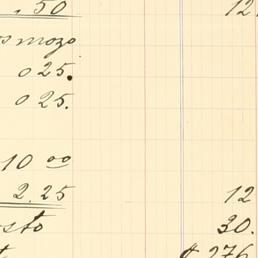 .50 12
mozo
025.
025.
10 00
2.25 12
30.
$276